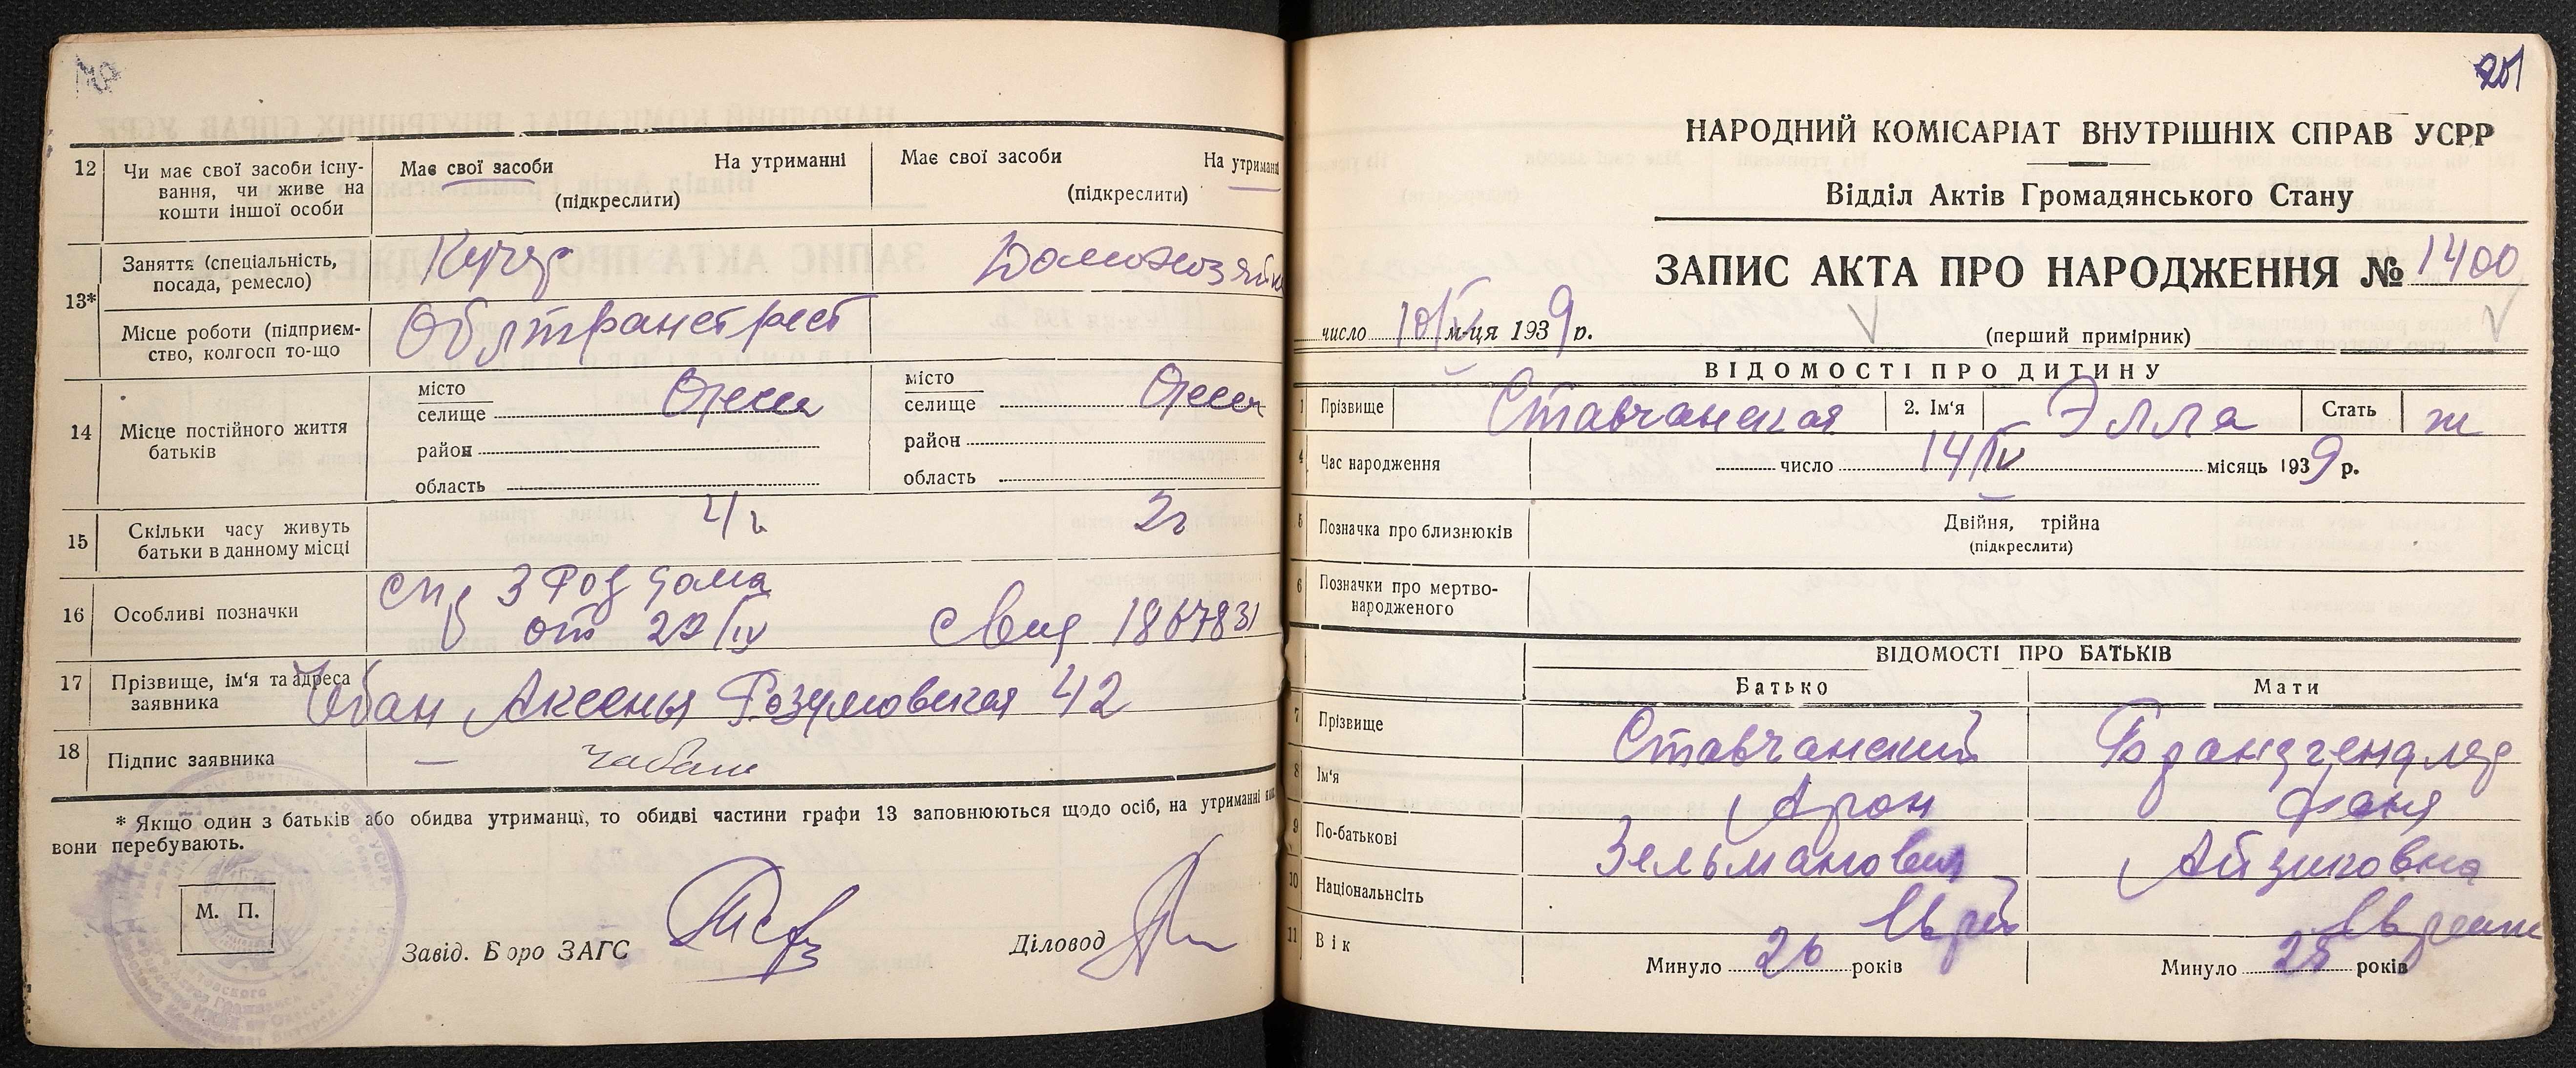 12 Чи має свої засоби існу-
вання, чи живе на
кошти іншої особи
Має свої засоби На утриманні
(підкреслити)
Має свої засоби На утриманні
(підкреслити)
13* Заняття (спеціальність,
посада, ремесло)
Кучер Домохозяйка
Місце роботи (підприєм-
ство, колгосп то-що
Облтранстрест
14 Місце постійного життя
батьків
місто
селище Одесса
район
область
місто
селище Одесса
район
область
15 Скільки часу живуть
батьки в данному місці
4 г 2 г
16 Особливі позначки
спр 3 Род дома
от 29/IV Свид 1867831
17 Прізвище, ім'я та адреса
заявника
Чебан Аксенья Розумовская 42
18 Підпис заявника
— Чабан
* Якщо один з батьків або обидва утриманці, то обидві частини графи 13 заповнюються щодо осіб, на утриманні яких
вони перебувають.
М. П.
Завід. Бюро ЗАГС
Діловод
201
НАРОДНИЙ КОМІСАРІАТ ВНУТРІШНІХ СПРАВ УСРР
Відділ Актів Громадянського Стану
ЗАПИС АКТА ПРО НАРОДЖЕННЯ № 1400
число 10/V м-ця 1939 р.
(перший примірник)
ВІДОМОСТІ ПРО ДИТИНУ
1 Прізвище Ставчанская 2. Ім'я Элла Стать ж
4 Час народження число 14/IV місяць 1939 р.
5 Позначка про близнюків Двійня, трійна
(підкреслити)
6 Позначки про мертво-
народженого
ВІДОМОСТІ ПРО БАТЬКІВ
Батько Мати
7 Прізвище Ставчанский Брандгендлер
8 Ім'я Арон Фаня
9 По-батькові Зельманович Айзиковна
10 Національнсіть Еврей Еврейк
11 Вік Минуло 26 років Минуло 25 років